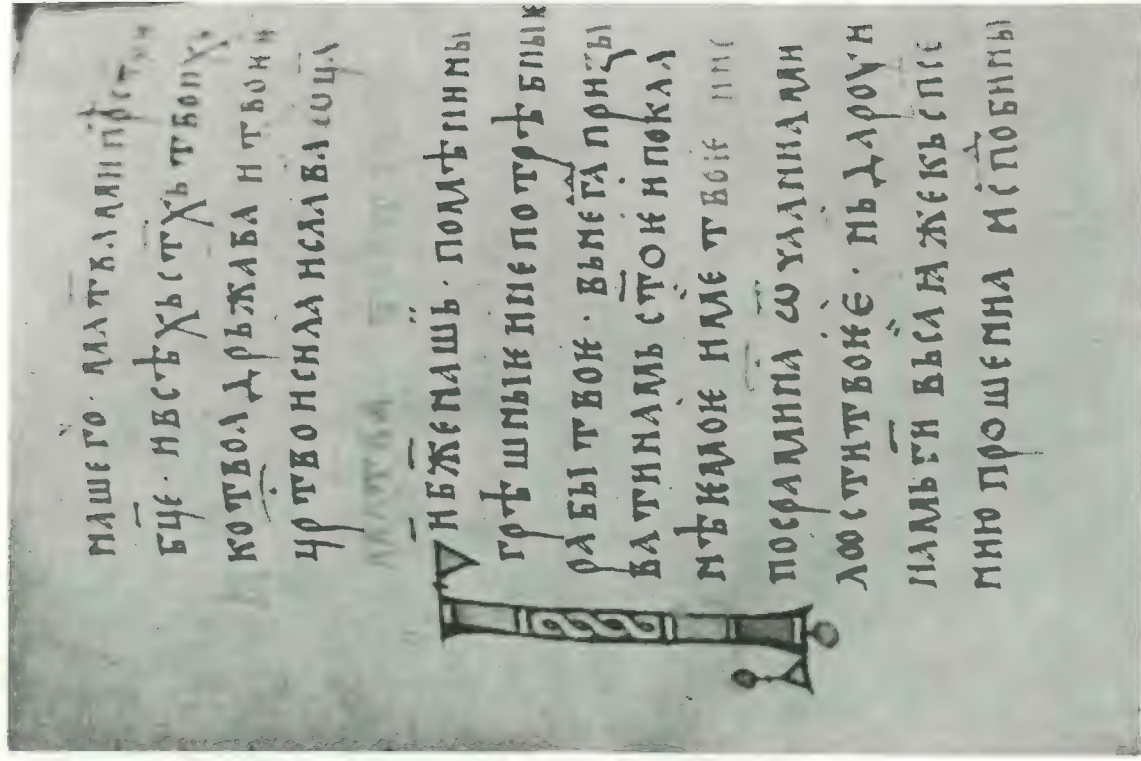 нашего · мл҃твами прѣст҃ыи
бц҃е · и всѣхь ст҃хь твоихь
ко твоꙗ дрьжава и твоѥ и
цр҃тво и сила и слава ѡц҃а
мл҃тва
Г҃и б҃же нашь · помѣни ны
грѣшныѥ и непотрѣбныѥ
рабы твоѥ · вьнегⷣа призы
вати намь ст҃оѥ и покла
нѣѥмоѥ име твоѥ и не
посрами на ѡ чаꙗниꙗ ми
лости твоѥ · нь дароуи
намь г҃и вьса ꙗже кь сп҃се
нию прошениа и споⷣби ны